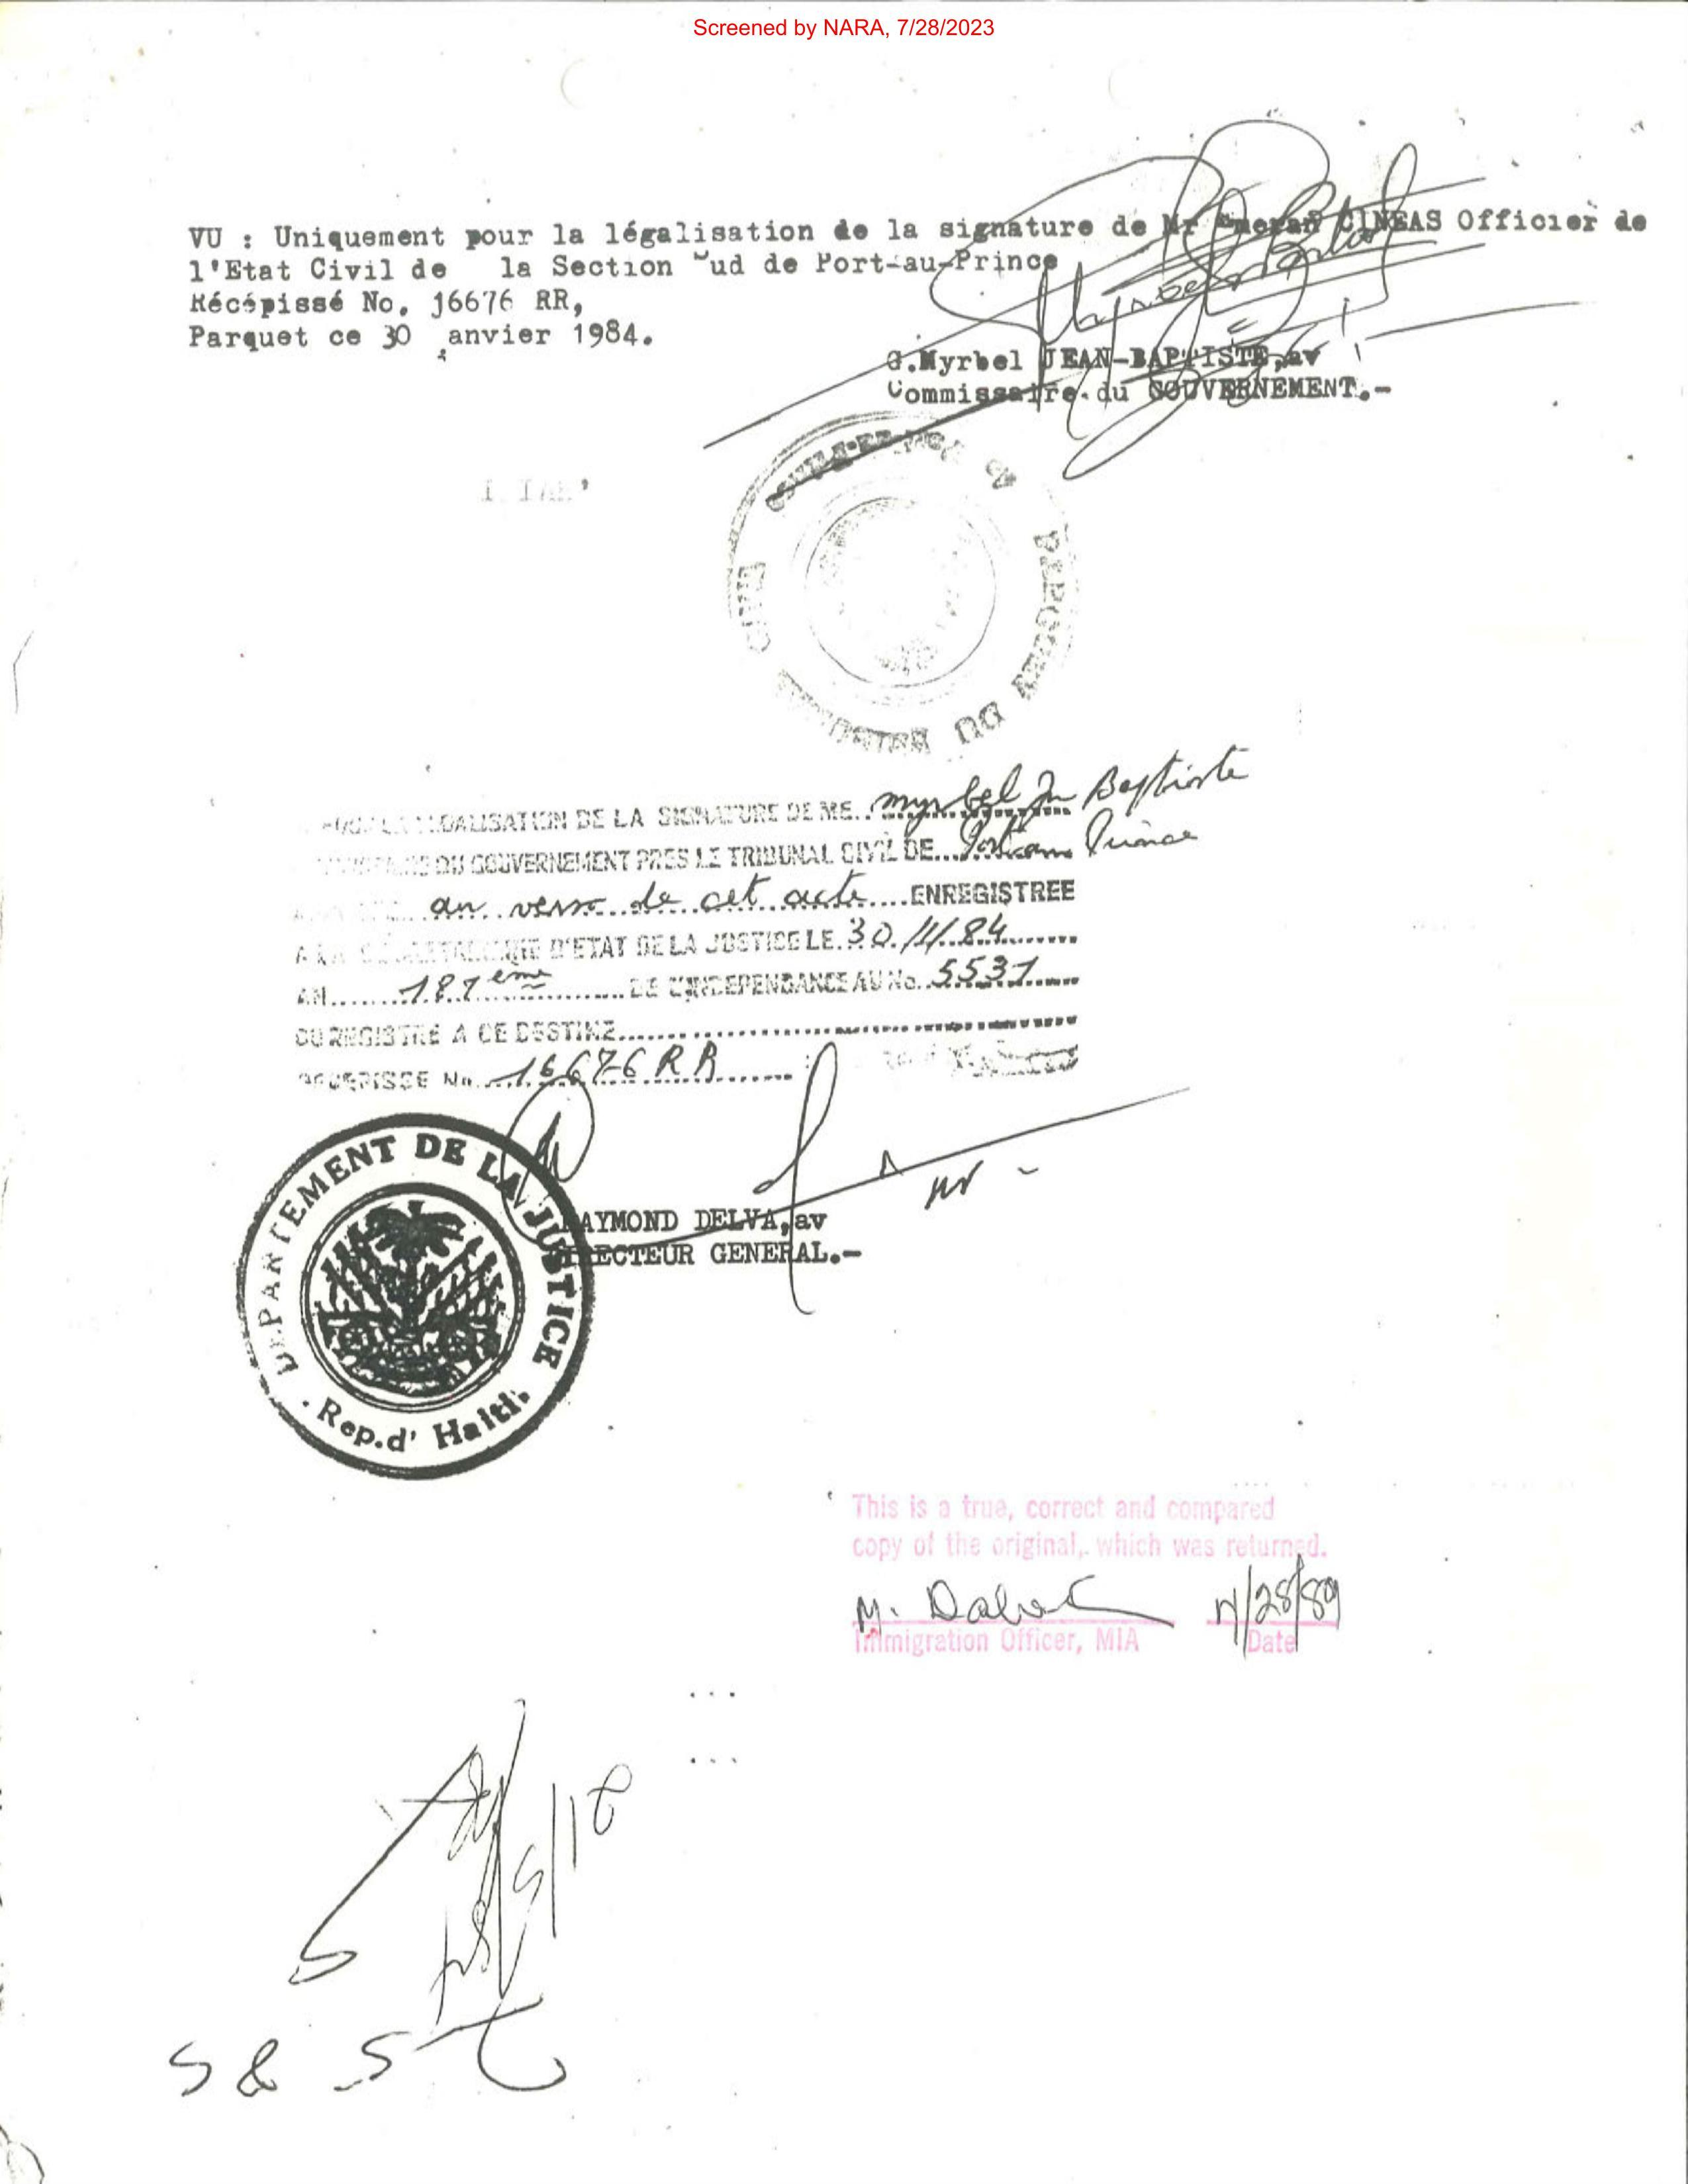 Screened by NARA, 7/28/2023
VU : Uniquement pour la légalisation de la signature de Mr CINEAS Officier de
l'Etat Civil de la Section Sud de Port-au-Prince
Récépissé No. 16676 RR,
Parquet ce 30 Janvier 1984.
G.Myrbel JEAN-BAPTISTE,av
Commissaire du GOUVERNEMENT.-
PARQUET DU TRIBUNAL CIVIL
LEGALISATION DE LA SIGNATURE DE ME. Myrbel Jn Baptiste
DU GOUVERNEMENT PRES LE TRIBUNAL CIVIL DE Port au Prince
au verso de cet acte ENREGISTREE
A LA D'ETAT DE LA JUSTICE LE 30/1/84
AN 181 eme DE L'INDEPENDANCE AU No. 5531
DU REGISTRE A CE DESTINE
RECEPISSE No. 16676 RR
DEPARTEMENT DE LA JUSTICE
Rep.d' Haiti.
RAYMOND DELVA,av
DIRECTEUR GENERAL.-
This is a true, correct and compared
copy of the original, which was returned.
M.
Immigration Officer, MIA Date